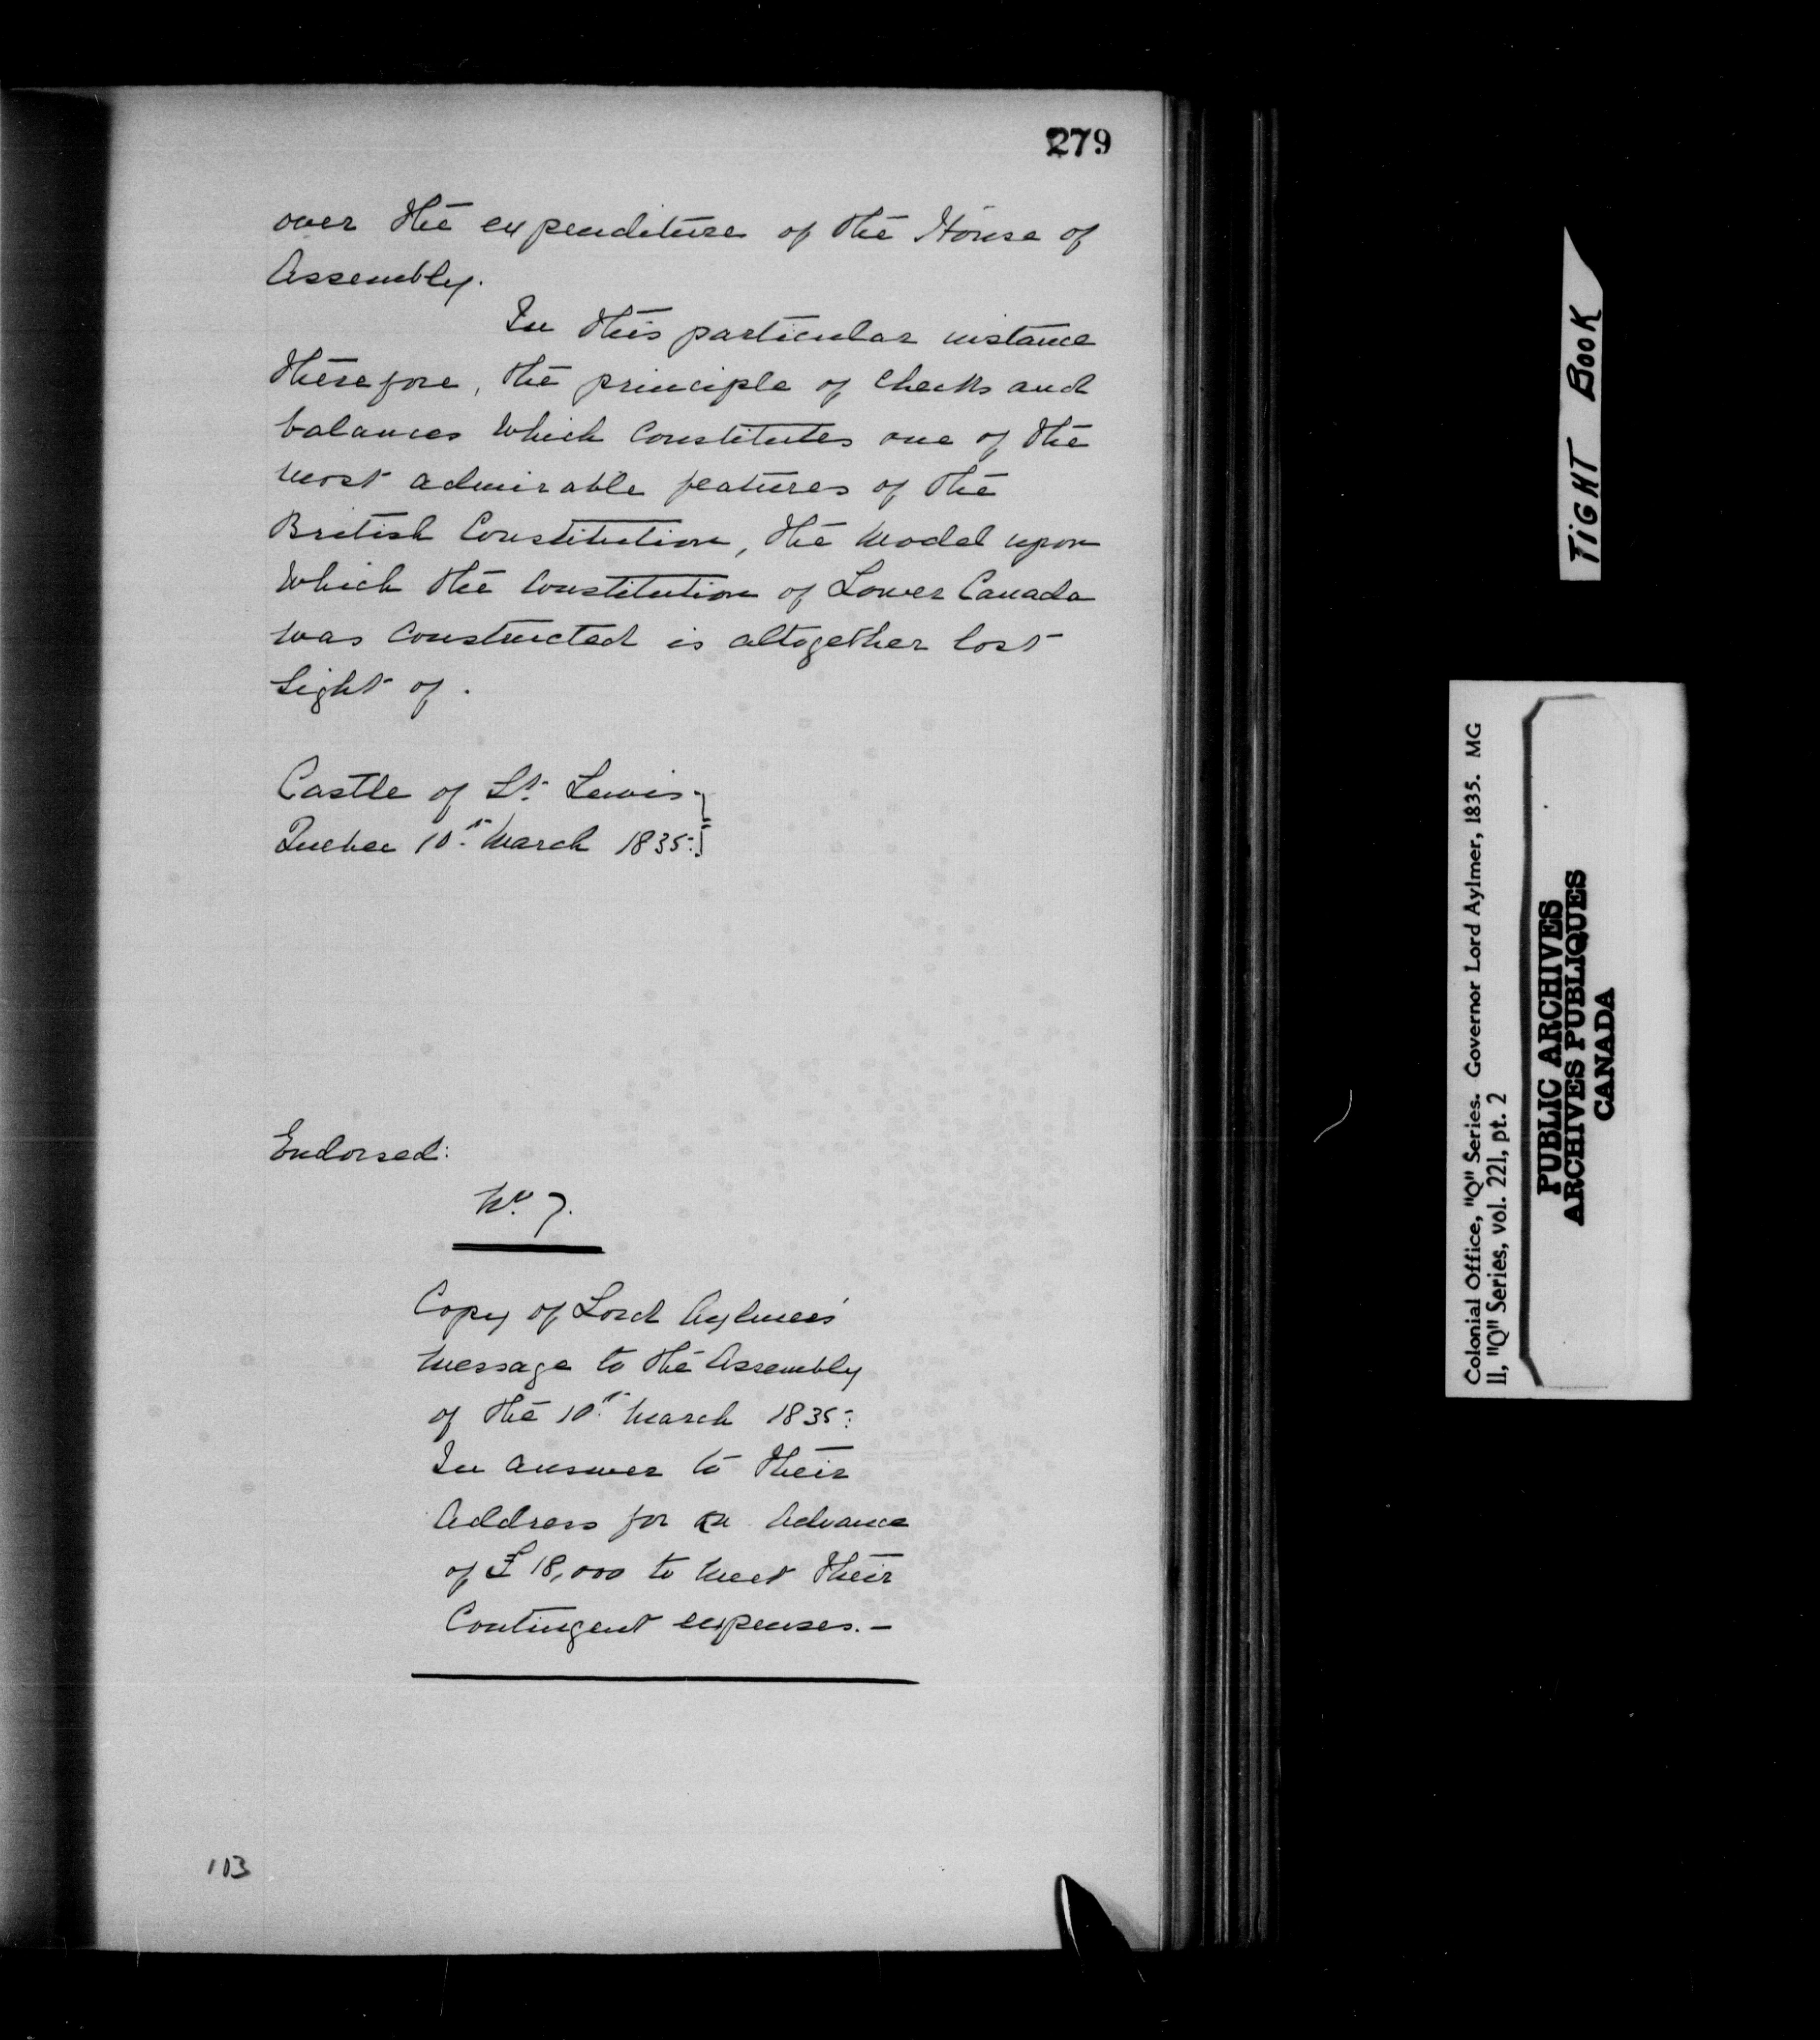 279
over the expenditure of the House of
Assembly.
In this particular instance
therefore, the principle of Checks and
balances Which Constitutes one of the
most admirable features of the
British Constitution, the Model upon
Which the Constitution of Lower Canada
was Constructed is altogether lost
Sight of.
Castle of St. Lewis.
Quebec 10th March 1835.
Endorsed:
No. 7.
Copy of Lord Aylmer's
Message to the Assembly
of the 10th March 1835:
In answer to their
Address for an Advance
of £18,000 to Meet their
Contingent expenses.—
103
TIGHT BOOK
Colonial Office, "Q" Series. Governor Lord Aylmer, 1835. MG
11, "Q" Series, vol. 221, pt. 2
PUBLIC ARCHIVES
ARCHIVES PUBLIQUES
CANADA